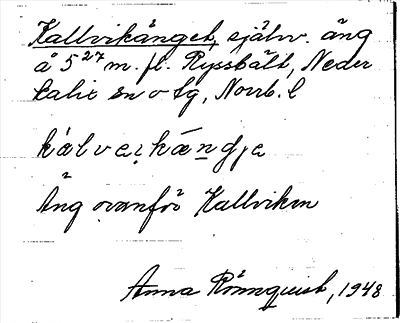 Kallvikänget, självv. äng
å 5²⁷ m. fl. Ryssbält, Neder
kalix sn o tg, Norrb. l
Äng ovanför Kallviken
Anna Rönnquist, 1948